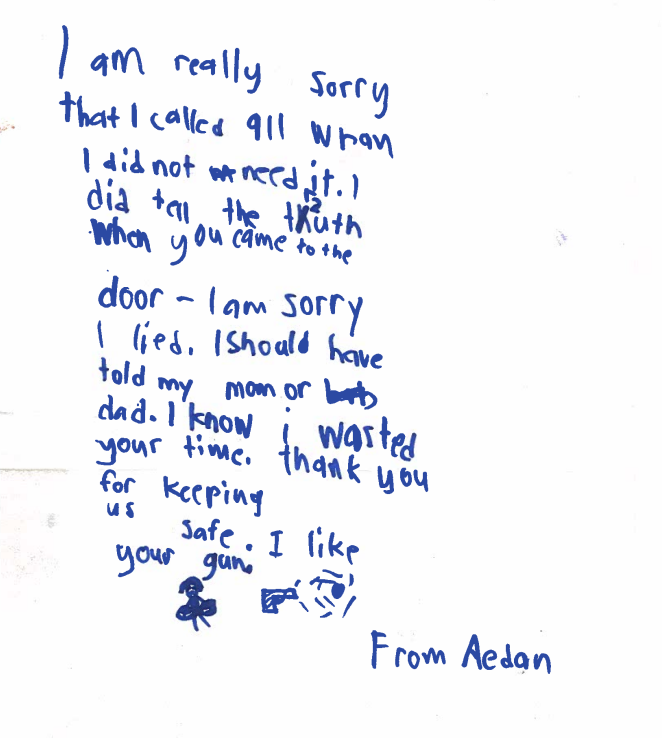 I am really sorry
that I called 911 whan
I did not need it. I
did tell the truth
When you came to the
door - I am sorry
I lied. I Should have
told my mom or
dad. I know i wasted
your time. thank you
for keeping
us
safe. I like
your gun.
From Aedan